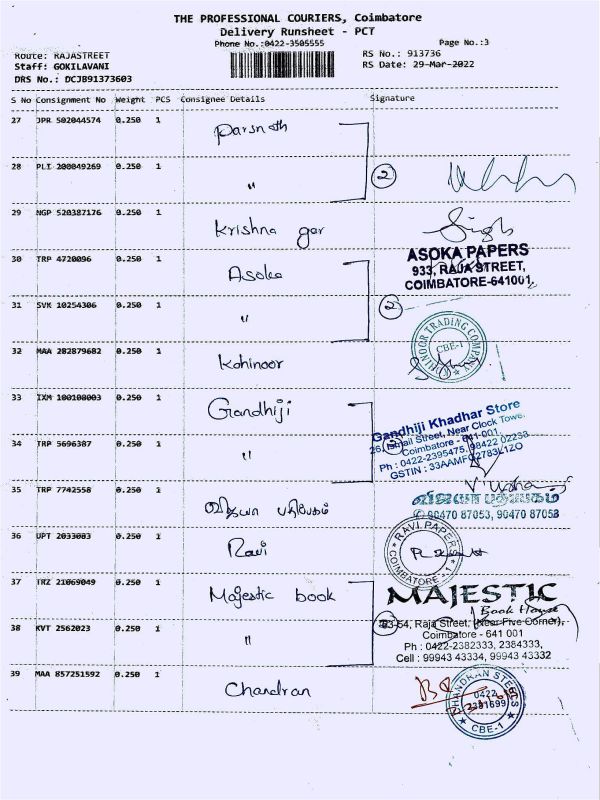 THE PROFESSIONAL COURIERS, Coimbatore
Delivery Runsheet - PCT
Phone No.:0422-3505555
Page No.:3
Route: RAJASTREET
Staff: GOKILAVANI
DRS No.: DCJB91373603
RS No.: 913736
RS Date: 29-Mar-2022
S No Consignment No Weight PCS Consignee Details Signature
27 JPR 502044574 0.250 1 Parsnath
28 PLI 200049269 0.250 1 " 2
29 NGP 520387176 0.250 1 Krishna gar Singh
30 TRP 4720096 0.250 1 Asoka
ASOKA PAPERS
933, RAJA STREET,
COIMBATORE-641001.
31 SVK 10254306 0.250 1 " 2
32 MAA 282879682 0.250 1 Kohinoor
KOHINOOR TRADING COMPANY
CBE-1
33 IXM 100108003 0.250 1 Gandhiji
Gandhiji Khadhar Store
26, Ismail Street, Near Clock Tower,
Coimbatore - 641-001.
Ph : 0422-2395475, 98422 02233
34 TRP 5696387 0.250 1 "
35 TRP 7742558 0.250 1
90470 87053, 90470 87058
36 UPT 2033083 0.250 1 Ravi
RAVI PAPER
COIMBATORE - 1
37 TRZ 21069049 0.250 1 Majestic book
MAJESTIC
Book House
Raja Street, (Near Five Corner),
Coimbatore - 641 001
Ph : 0422-2382333, 2384333,
Cell : 99943 43334, 99943 43332
38 KVT 2562023 0.250 1 "
39 MAA 857251592 0.250 1 Chandran
CHANDRAN STEELS
0422
CBE-1